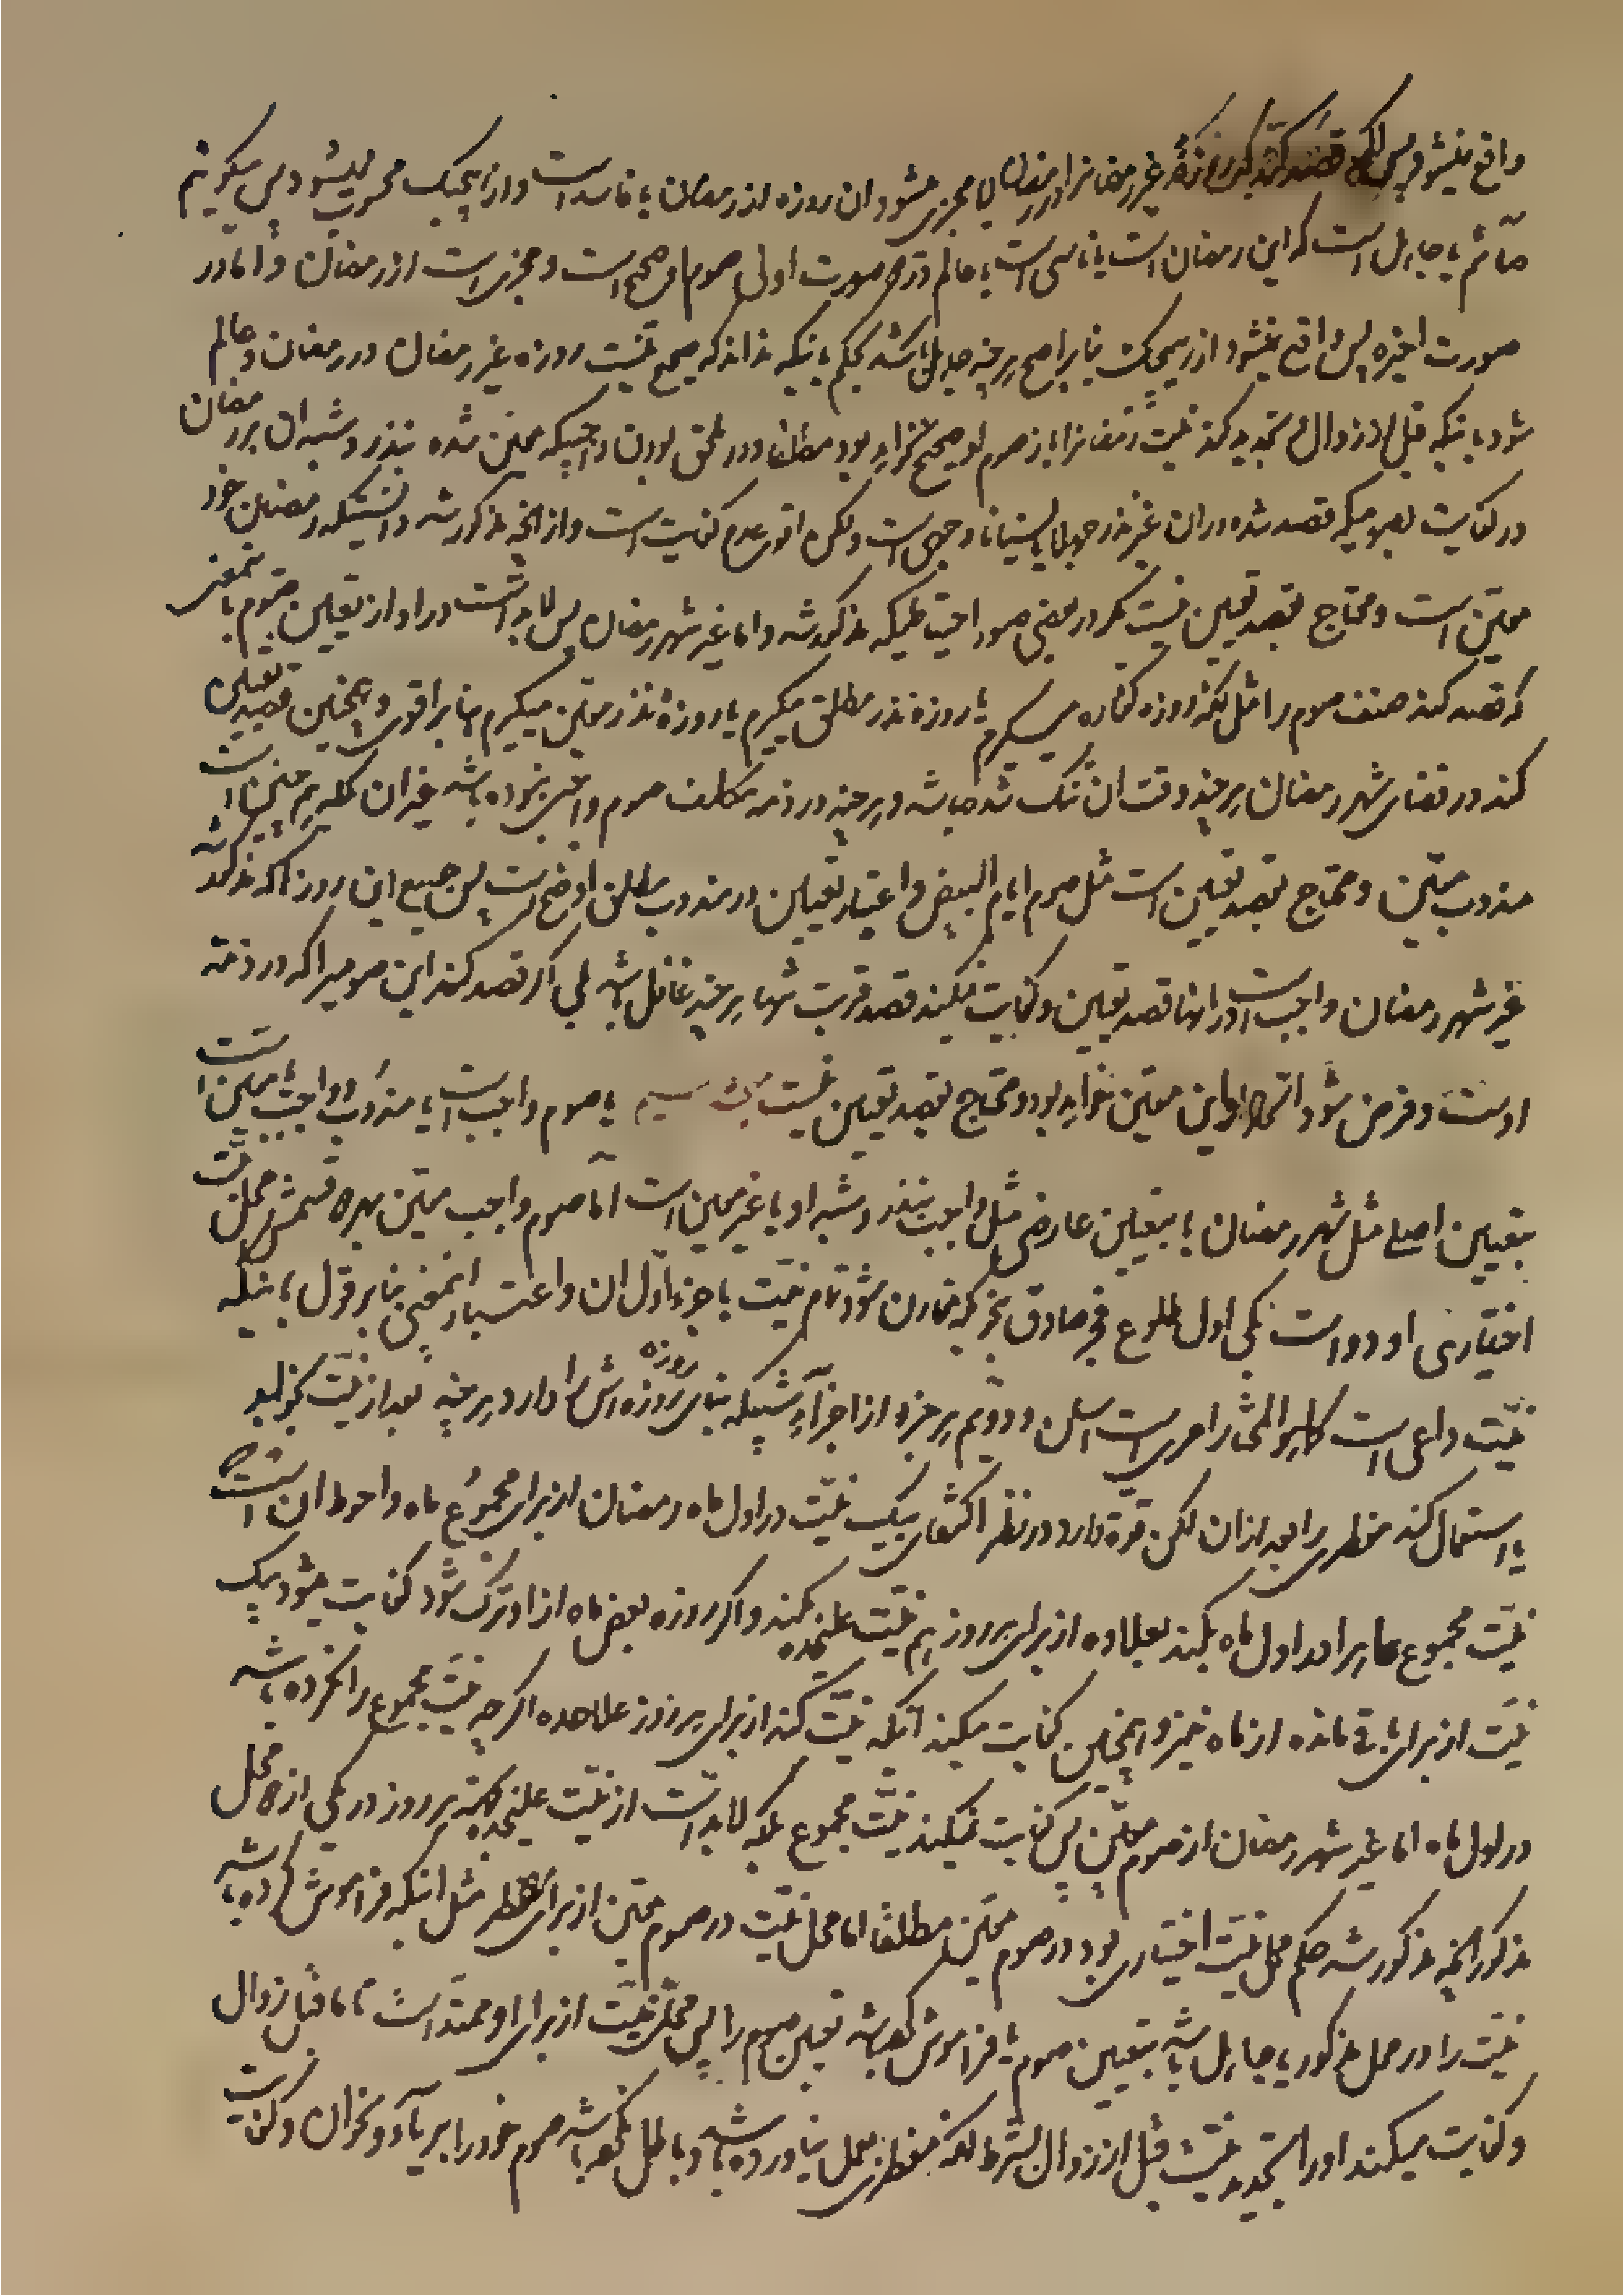 واقع نمیشود پس اگر قصد کند غیر رمضانرا در رمضان ایا مجزی میشود ان روزه از رمضان یا فاسد است و از هیچیک محسوب نمیشود پس میگوئیم
صائم یا جاهل است که این رمضان است یا ناسی است یا عالم و در صورت اولی صوم او صحیح است و مجزی است از رمضان و اما در
صورت اخیره پس واقع نمیشود از هیچیک بنابر اصح هر چند جاهل باشد بحکم باینکه نداند که صحیح نیست روزه غیر رمضان در رمضان و عالم
شود باینکه قبل از زوال تجدید کند نیت رمضانرا باز صوم او صحیح نخواهد بود مطلقا و در ملحق بودن واجبیکه معین شده بنذر و شبه ان برمضان
در کفایت بصومیکه قصد شده در ان غیر نذر جهلا یا نسیانا وجهی است ولکن اقوی عدم کفایت است و از انچه مذکور شد دانستیکه رمضان خود
معین است و محتاج بقصد تعیین نیست مگر در بعضی صور احتیاطیکه مذکور شد و اما غیر شهر رمضان پس لابد است در او از تعیین صوم باینمعنی
که قصد کند صنف صوم را مثل انکه روزه کفاره میگیرم یا روزه نذر مطلق میگیرم یا روزه نذر معین میگیرم بنابر اقوی و همچنین قصد تعیین
کند در قضای شهر رمضان هر چند وقت ان تنگ شده باشد و هر چند در ذمه مکلف صوم واجبی نبوده باشد غیر ان بلکه هم چنین است
مندوب معین و محتاج بقصد تعیین است مثل صوم ایام البیض و اعتبار تعیین در مندوب مطلق اوضح است پس جمیع این روزها که مذکور شد
غیر شهر رمضان واجب است در انها قصد تعیین و کفایت نمیکند قصد قربت تنها هر چند غافل باشد بلی اگر قصد کند این صومیرا که در ذمه
اوست و فرض شود اتحاد او این معین خواهد بود و محتاج بقصد تعیین نیست مبحث سیم یا صوم واجب است یا مندوب و واجب یا معین است
بتعیین اصلی مثل شهر رمضان یا بتعیین عارضی مثل واجب بنذر و شبه او یا غیر معین است اما صوم واجب معین بهر دو قسمش محل نیت
اختیاری او دو است یکی اول طلوع فجر صادق بنحویکه مقارن شود تمام نیت با جزء اول ان و اعتبار اینمعنی بنابر قول باینکه
نیت داعی است کما هو المختار امری است سهل و دویم هر جزء از اجزاء شبیکه بنای روزه اش را دارد هر چند بعد از نیت بخوابد
یا استعمال کند مفطری را بعد از ان لکن قوة دارد در نظر اکتفای بیک نیت در اول ماه رمضان از برای مجموع ماه و احوط ان است که
نیت مجموع ماه را در اول ماه بکند بعلاوه از برای هر روز هم نیت علیحده بکند و اگر روزه بعض ماه از او ترک شود کفایت میشود بیک
نیت از برای باقی مانده از ماه نیز و همچنین کفایت میکند آنکه نیت کند از برای هر روز علاحده اگر چه نیت مجموع را نکرده باشد
در اول ماه اما غیر شهر رمضان از صوم معین پس کفایت نمیکند نیت مجموع بلکه لابد است از نیت علیحده بهر روز در یکی از دو محل
مذکور انچه مذکور شد حکم محل نیت اختیاری بود در صوم معین مطلقا اما محل نیت در صوم معین از برای مضطر مثل انکه فراموش کرده باشد
نیت را در محل مذکور یا جاهل باشد بتعیین صوم یا فراموش کرده باشد تعیین صوم را پس محل نیت از برای او ممتد است تا ما قبل زوال
و کفایت میکند او را تجدید نیت قبل از زوال بشرط انکه مفطری بعمل نیاورده باشد و باطل نکرده باشد صوم خود را بریا و نحو ان و کفایت